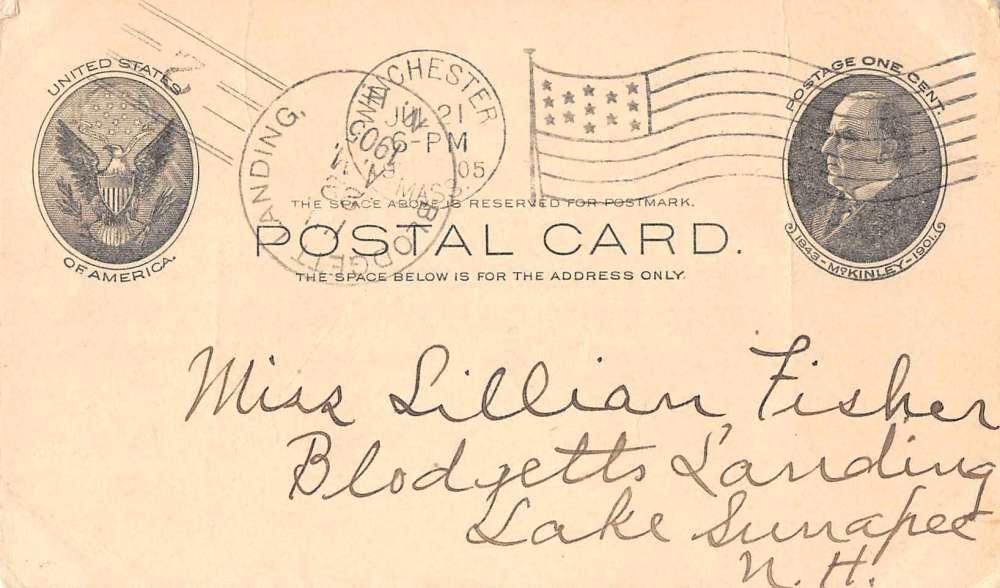 UNITED STATES
OF AMERICA.
WINCHESTER
JUL 21
6-PM
05
MASS.
LANDING,
1905
POSTAGE ONE CENT.
1843-McKINLEY-1901.
THE SPACE ABOVE IS RESERVED FOR POSTMARK.
POSTAL CARD.
THE SPACE BELOW IS FOR THE ADDRESS ONLY.
Miss Lillian Fisher,
Blodgetts Landing
Lake Sunapee
N. H.